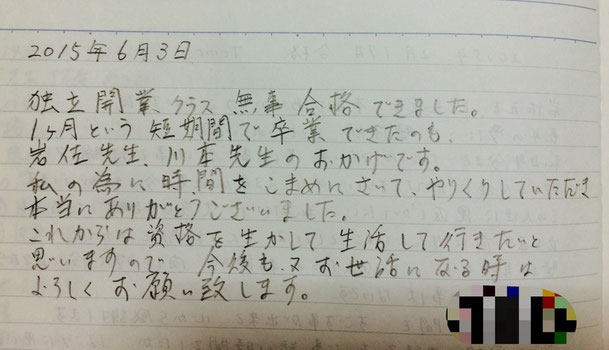 2015年6月3日
独立開業クラス 無事 合格できました。
1ヶ月という短期間で卒業できたのも、
岩佐先生、川本先生のおかげです。
私の為に時間をこまめにさいて、やりくりしていただき
本当にありがとうございました。
これからは資格を生かして生活して行きたいと
思いますので 今後も又お世話になる時は
よろしくお願い致します。